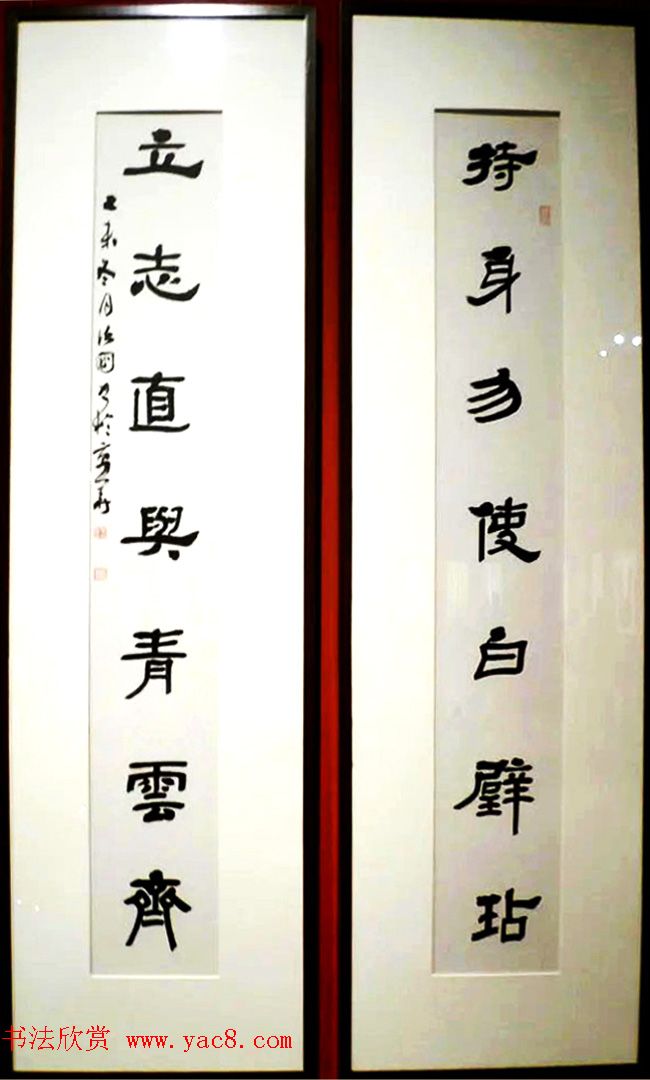 持身勿使白璧玷
立志直與青雲齊
书法欣赏 www.yac8.com